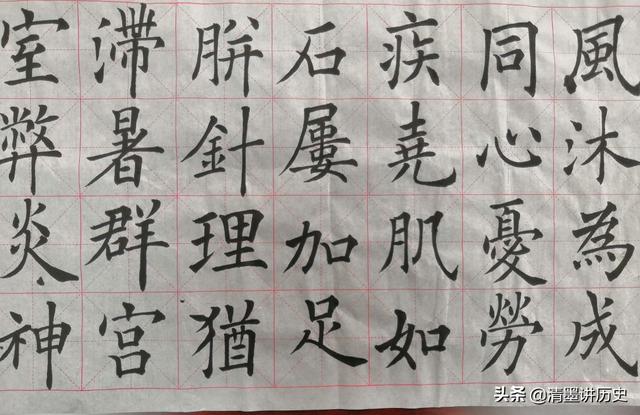 風沐為成
同心憂勞
疾堯肌如
石屢加足
胼針理猶
滯暑群宫
室弊炎神
头条 @清墨讲历史